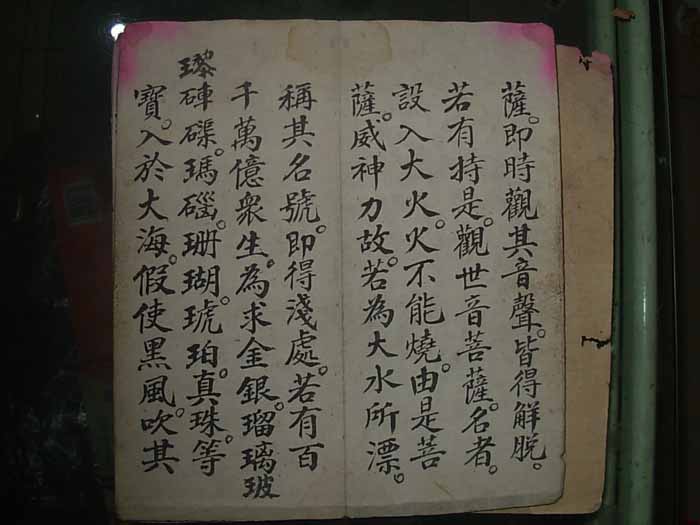 薩。即時觀其音聲。皆得解脫。
若有持是。觀世音菩薩。名者。
設入大火。火不能燒。由是菩
薩。威神力故。若為大水所漂。
稱其名號。即得淺處。若有百
千萬億衆生。為求金銀。瑠璃玻
瓈硨磲。瑪碯。珊瑚。琥珀。真珠。等
寶。入於大海。假使黑風。吹其